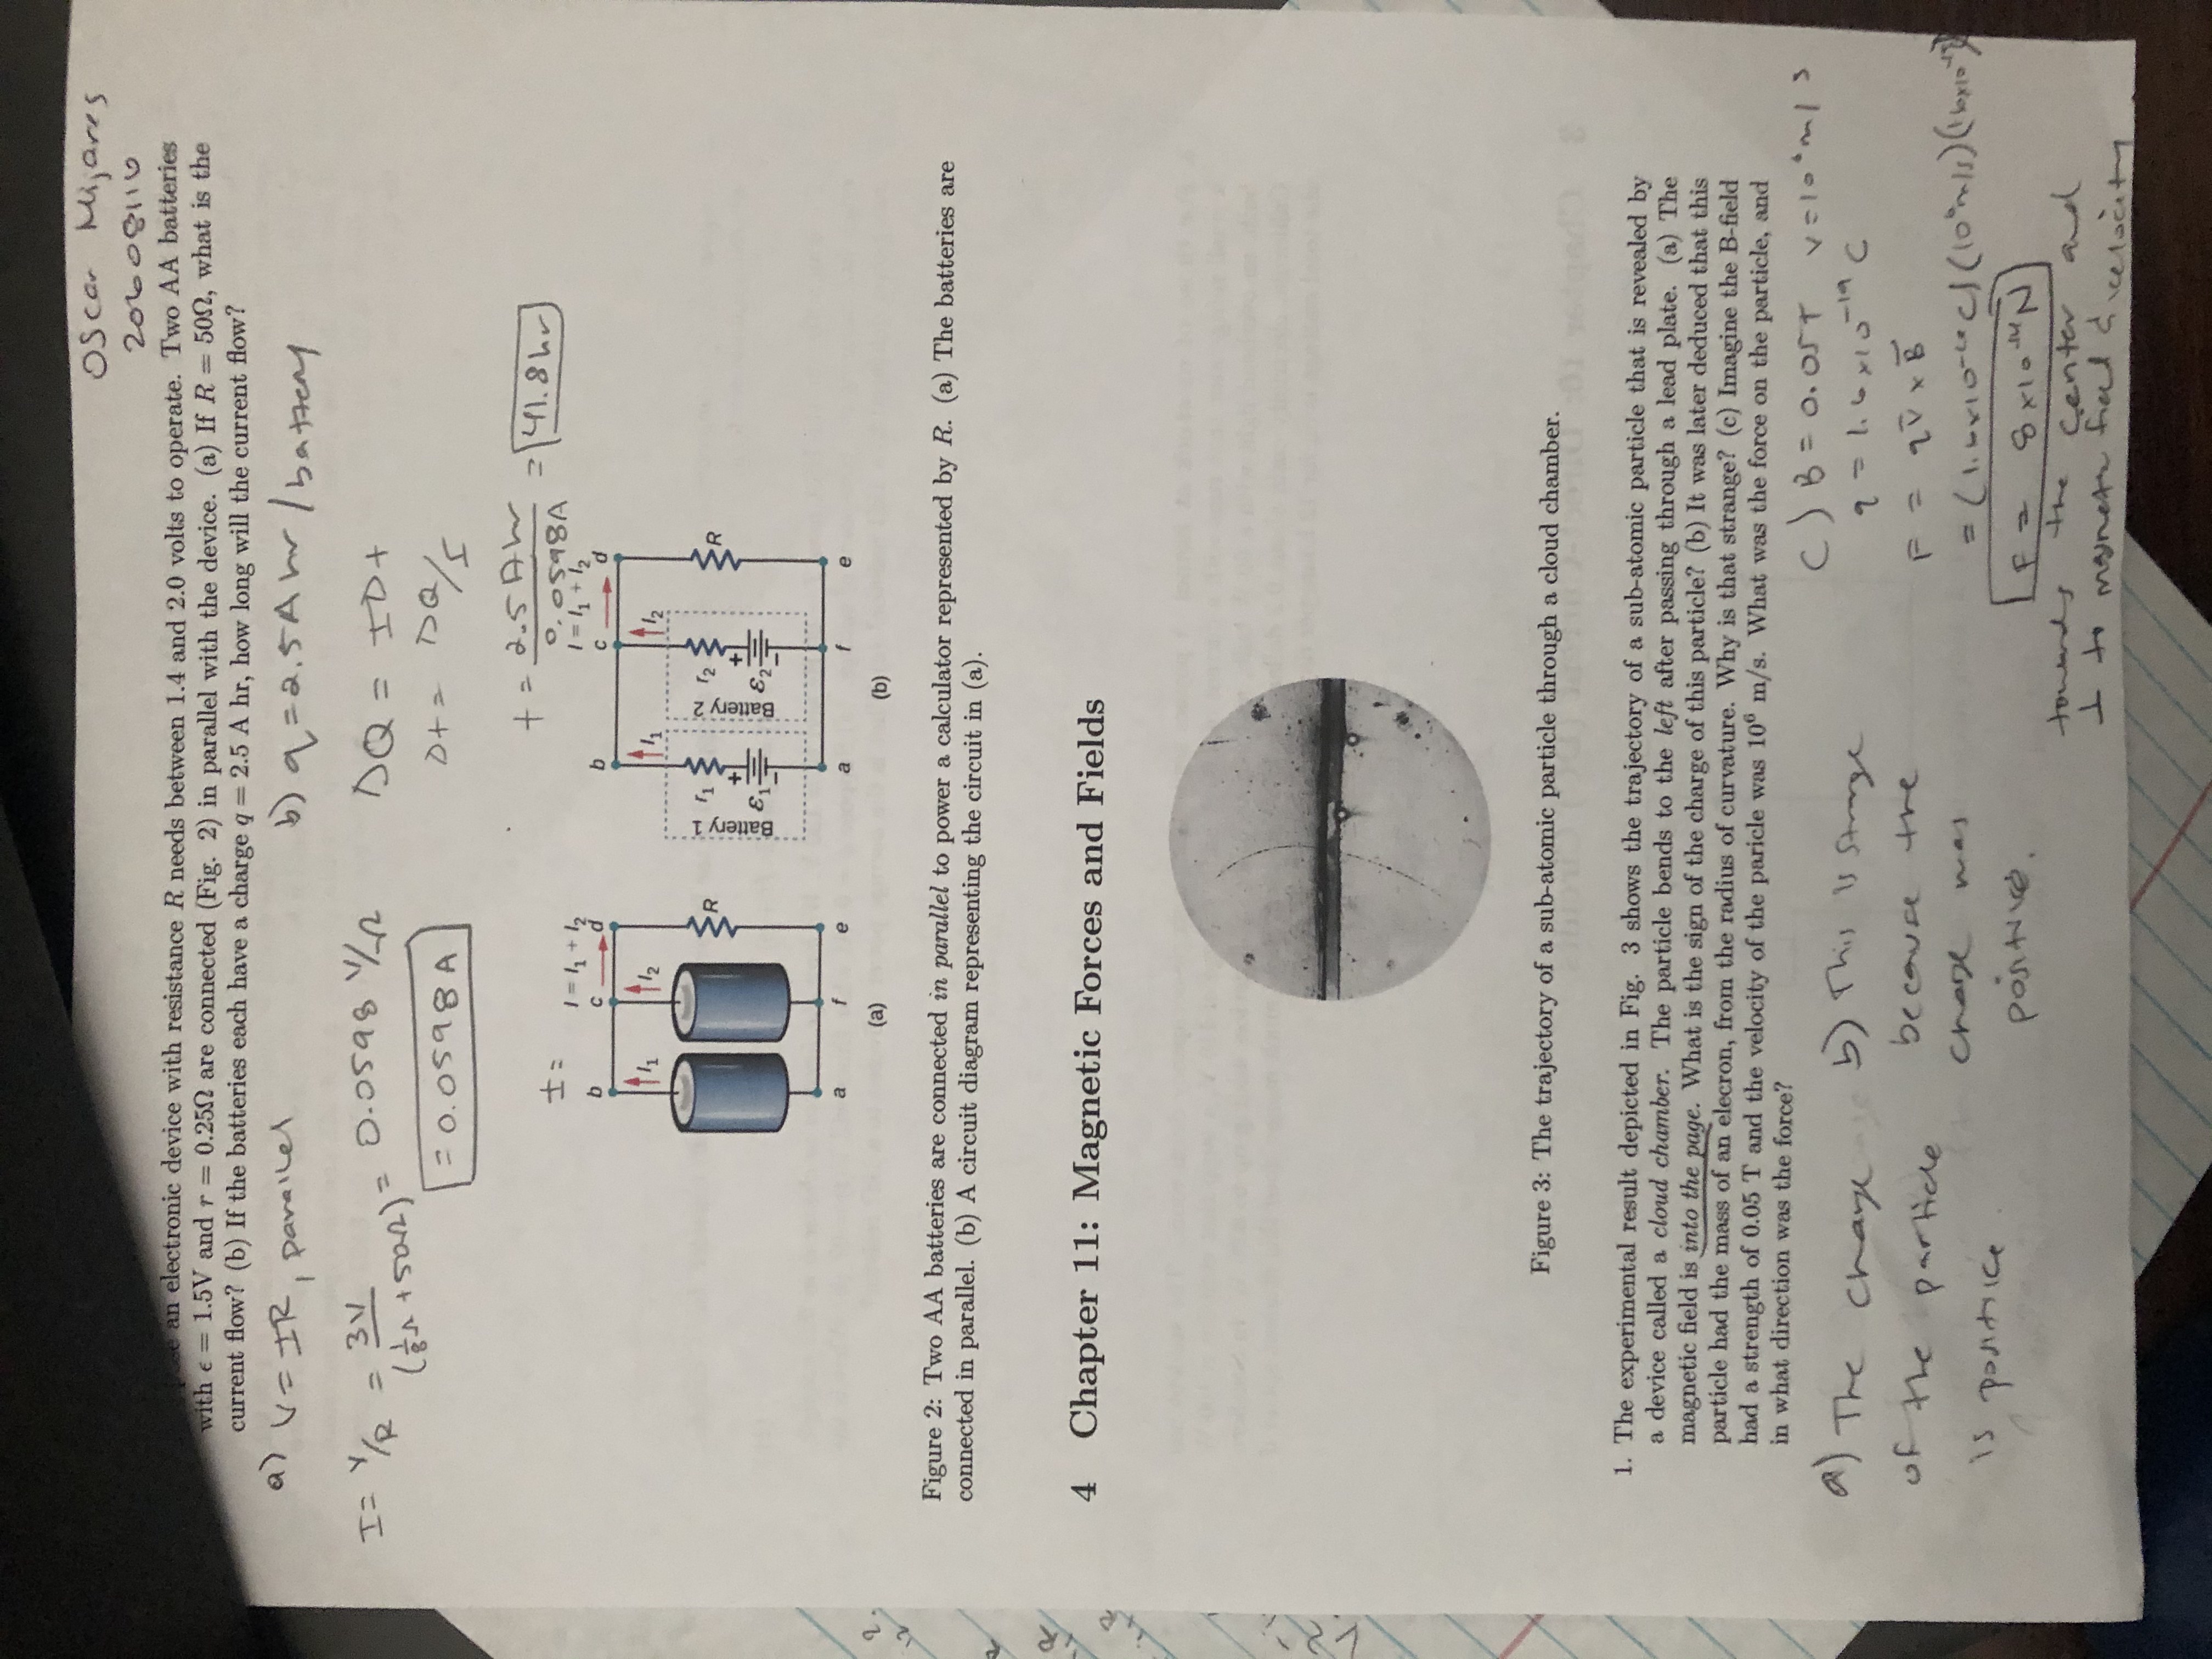 Oscar Mijares
20608116
an electronic device with resistance R needs between 1.4 and 2.0 volts to operate. Two AA batteries
with ϵ = 1.5V and r = 0.25Ω are connected (Fig. 2) in parallel with the device. (a) If R = 50Ω, what is the
current flow? (b) If the batteries each have a charge q = 2.5 A hr, how long will the current flow?
a) V = IR, parallel
b) q = 2.5 A hr / battery
I = V/R = 3V / (1/8 Ω + 50Ω) = 0.0598 V/Ω
= 0.0598 A
ΔQ = IΔt
Δt = ΔQ/I
t = 2.5 A hr / 0.0598A = 41.8 hr
I =
I = I₁ + I₂
b c d
I₁ I₂
R
a f e
(a)
I = I₁ + I₂
b c d
I₁ I₂
Battery 1 r₁ + ε₁ −
Battery 2 r₂ + ε₂ −
R
a f e
(b)
Figure 2: Two AA batteries are connected in parallel to power a calculator represented by R. (a) The batteries are
connected in parallel. (b) A circuit diagram representing the circuit in (a).
4 Chapter 11: Magnetic Forces and Fields
Figure 3: The trajectory of a sub-atomic particle through a cloud chamber.
1. The experimental result depicted in Fig. 3 shows the trajectory of a sub-atomic particle that is revealed by
a device called a cloud chamber. The particle bends to the left after passing through a lead plate. (a) The
magnetic field is into the page. What is the sign of the charge of this particle? (b) It was later deduced that this
particle had the mass of an elecron, from the radius of curvature. Why is that strange? (c) Imagine the B-field
had a strength of 0.05 T and the velocity of the paricle was 10⁶ m/s. What was the force on the particle, and
in what direction was the force?
a) The charge
of the particle
is positive.
b) This is strange
because the
charge was
positive.
C) B = 0.05T v = 10⁶ m/s
q = 1.6x10⁻¹⁹ C
F = qv̄ x B̄
(10⁶ m/s)
F = 8x10⁻¹⁴ N
towards the center and
⊥ to magnetic field & velocity